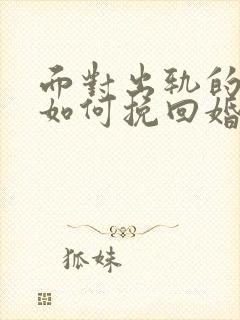 而對出軌的
如何挽回婚
狐妹